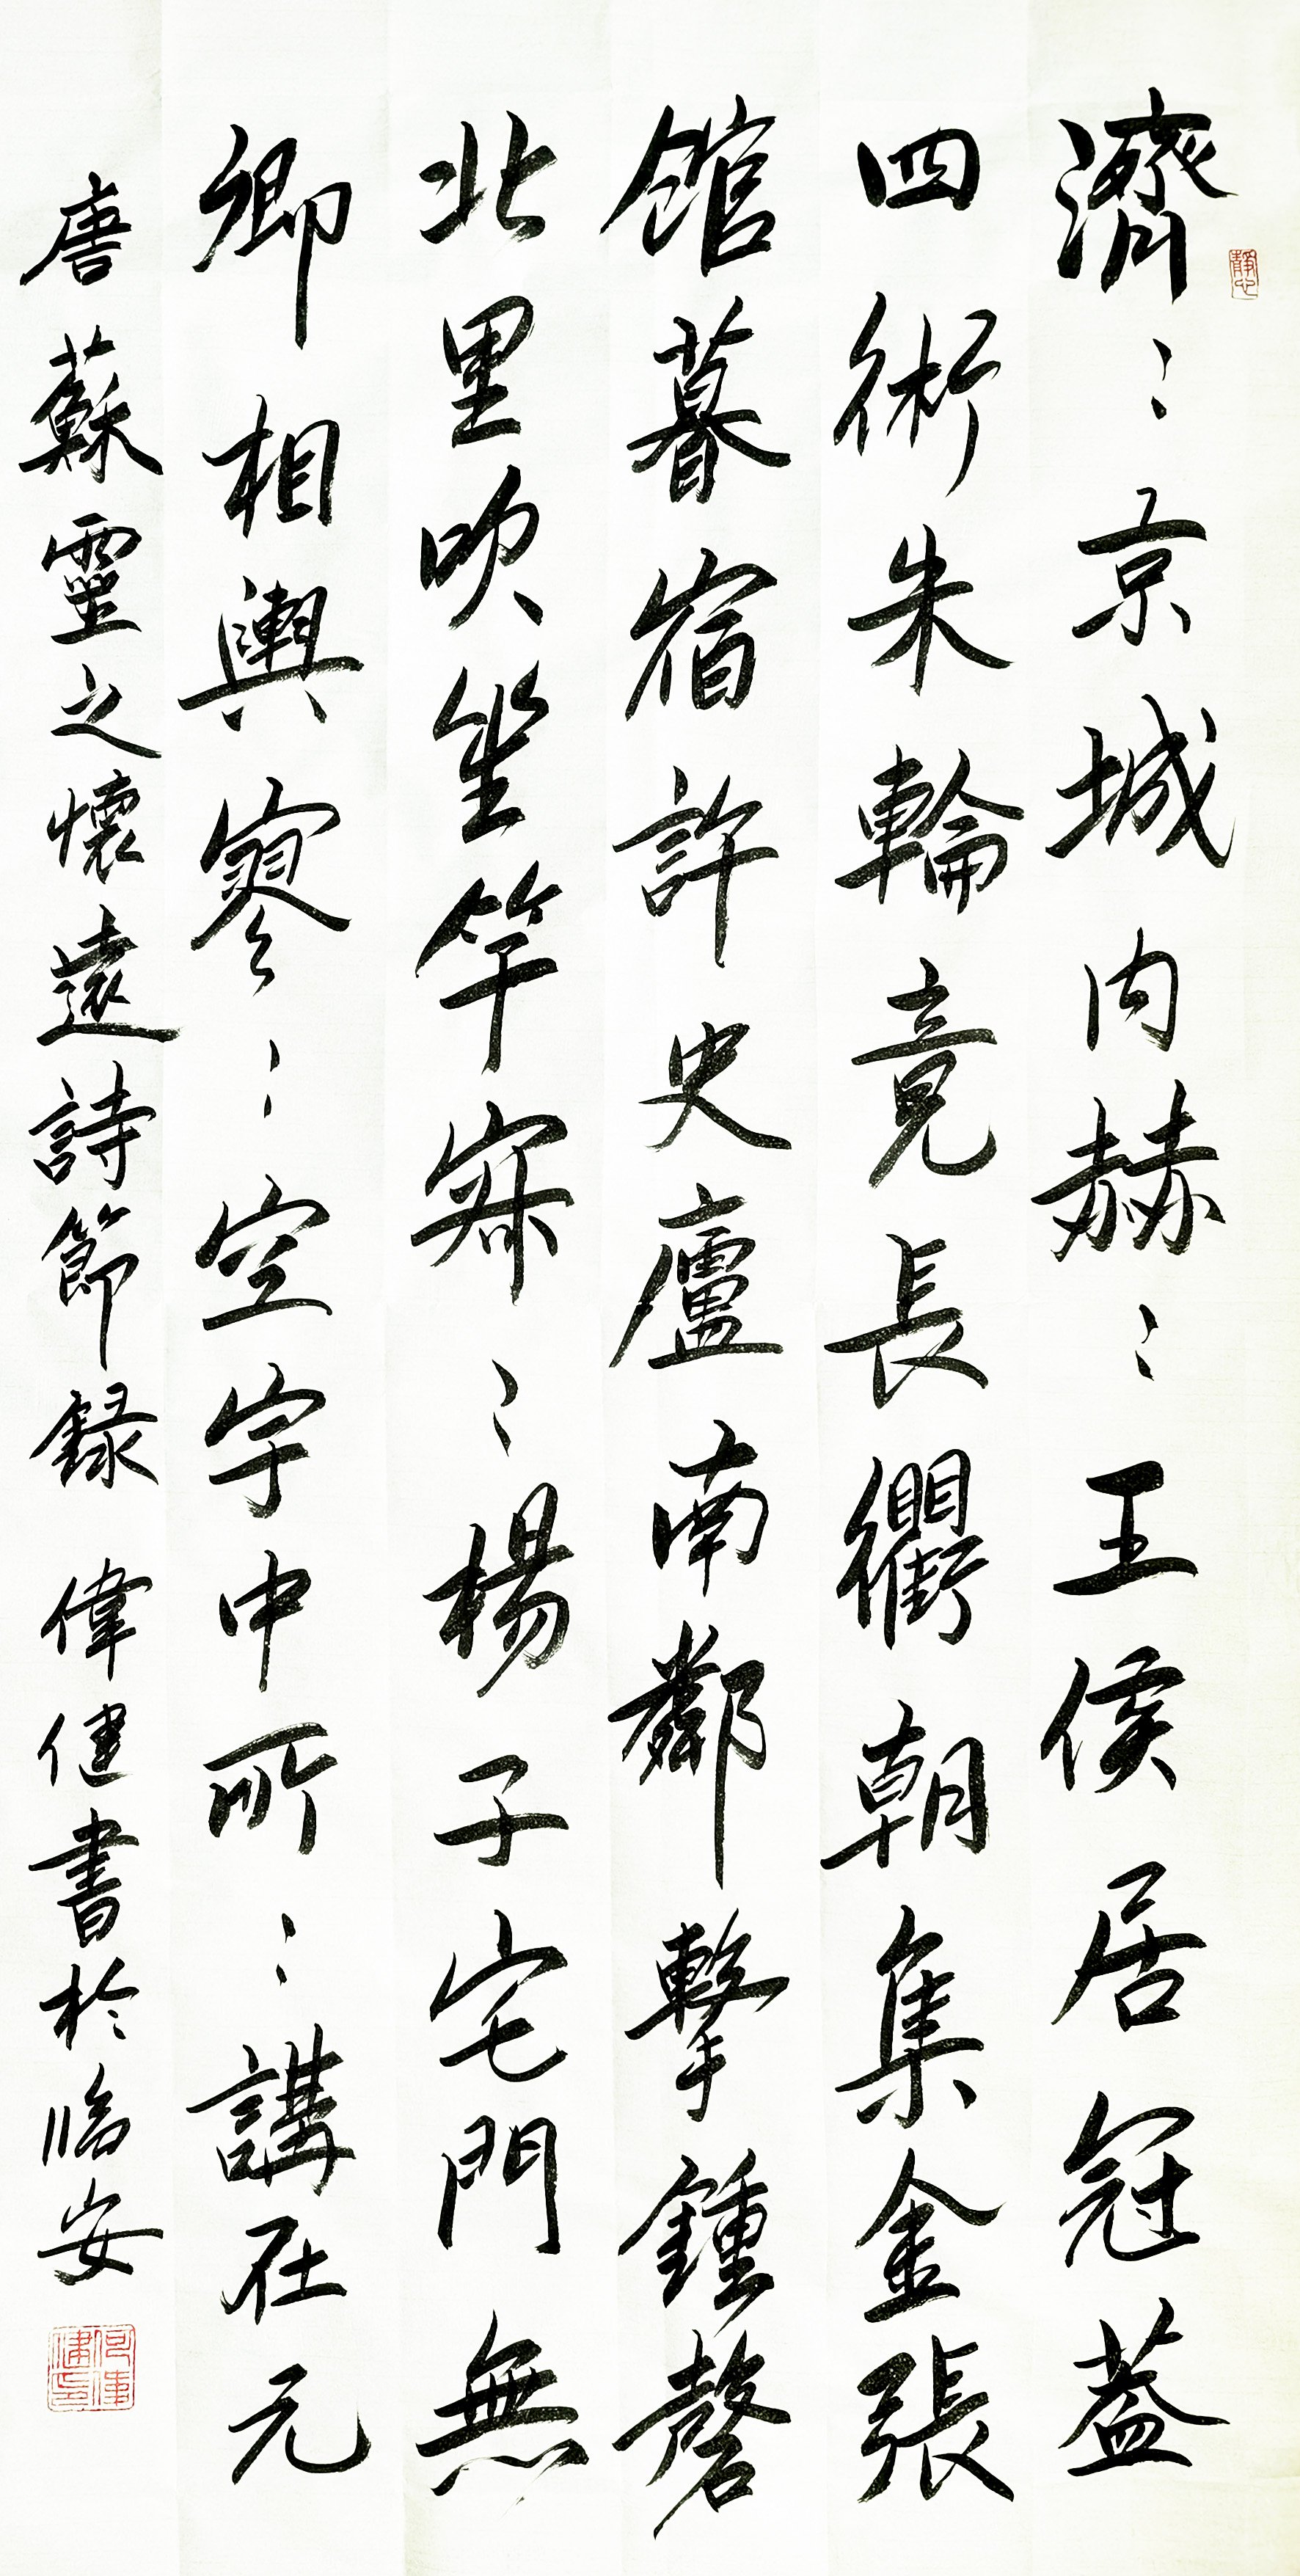 靜心
濟〻京城内赫〻王侯居冠蓋
四術朱輪竟長衢朝集金張
館暮宿許史廬南鄰擊鍾磬
北里吹笙竽寂〻楊子宅門無
卿相輿寥〻空宇中所〻講在元
唐蘇靈之懷遠詩節録 偉健書於臨安